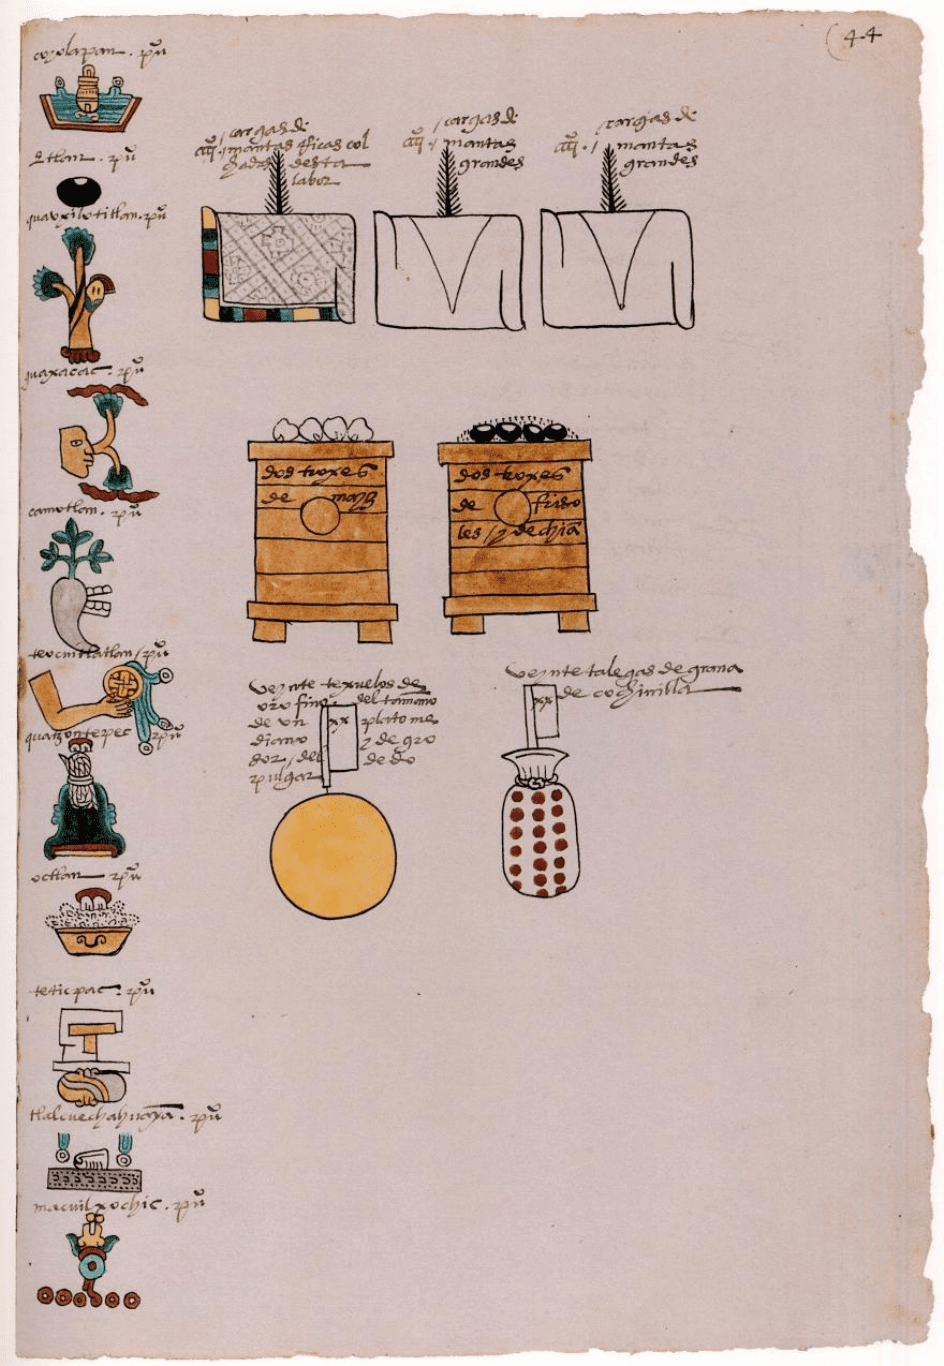 44
coyolapan. pu°
etlan. pu°
quauxilotitlan. pu°
guaxacac. pu°
camotlan. pu°
teocuitlatlan / pu°
quatzontepec pu°
octlan pu°
teticpac. pu°
tlalcuechahuaya. pu°
macuilxochic. pu°
/ cargas de
mantas rricas col
chadas desta
labor
/ cargas de
mantas
grandes
/ cargas de
mantas
grandes
dos troxes
de mayz
dos troxes
de friso
les / y de chia
veynte texuelos de
oro fino del tamaño
de un plato me
diano y de gro
sor / del de do
pulgar
xx
veynte talegas de grana
de cochinilla
xx